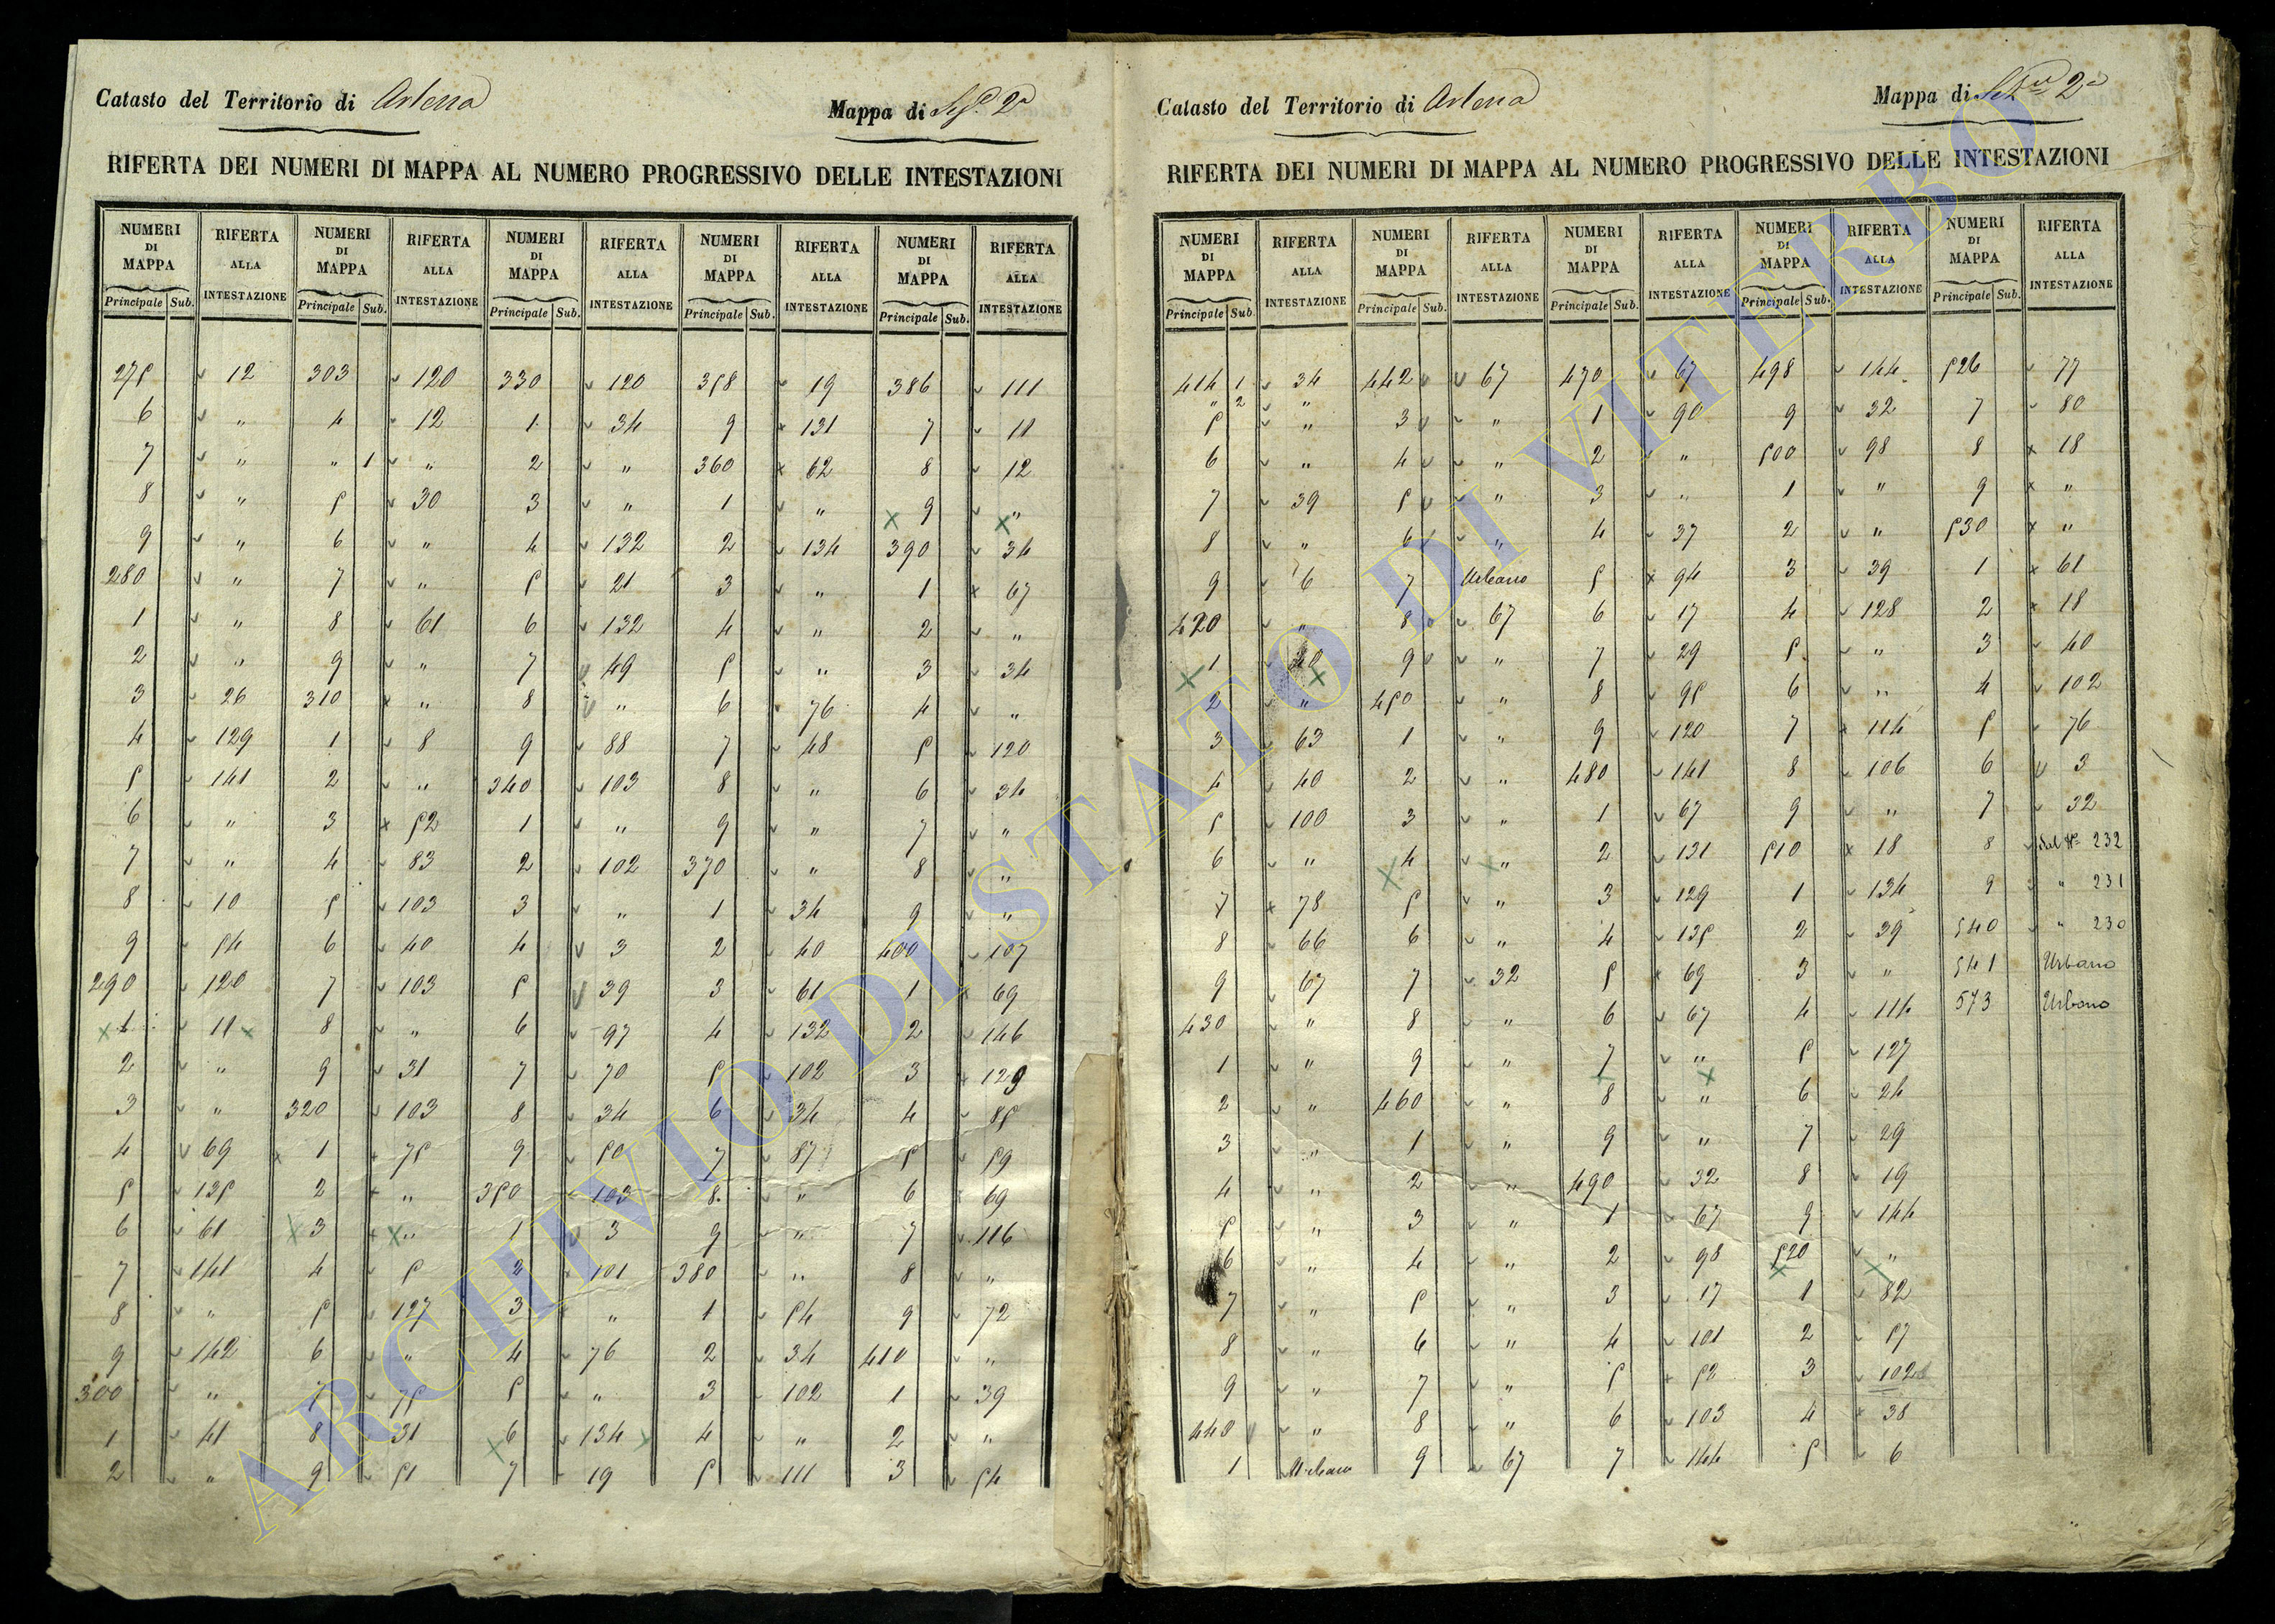 Catasto del Territorio di Arlena
Mappa di 2ª
RIFERTA DEI NUMERI DI MAPPA AL NUMERO PROGRESSIVO DELLE INTESTAZIONI
NUMERI DI MAPPA RIFERTA ALLA INTESTAZIONE NUMERI DI MAPPA RIFERTA ALLA INTESTAZIONE NUMERI DI MAPPA RIFERTA ALLA INTESTAZIONE NUMERI DI MAPPA RIFERTA ALLA INTESTAZIONE NUMERI DI MAPPA RIFERTA ALLA INTESTAZIONE
Principale Sub. Principale Sub. Principale Sub. Principale Sub. Principale Sub.
275 12 303 120 330 120 358 19 386 111
6 " 4 12 1 34 9 131 7 11
7 " " 1 " 2 " 360 62 8 12
8 " 5 30 3 " 1 " 9 "
9 " 6 " 4 132 2 134 390 34
280 " 7 " 5 21 3 " 1 67
1 " 8 61 6 132 4 " 2 "
2 " 9 " 7 49 5 " 3 34
3 26 310 " 8 " 6 76 4 "
4 129 1 8 9 88 7 48 5 120
5 141 2 " 340 103 8 " 6 34
6 " 3 52 1 " 9 " 7 "
7 " 4 83 2 102 370 " 8 "
8 10 5 103 3 " 1 34 9 "
9 54 6 40 4 3 2 40 400 107
290 120 7 103 5 39 3 61 1 69
1 11 8 " 6 97 4 132 2 146
2 " 9 31 7 70 5 102 3 129
3 " 320 103 8 34 6 34 4 85
4 69 1 75 9 50 7 87 5 59
5 135 2 " 350 103 8 " 6 69
6 61 3 " 1 3 9 " 7 116
7 141 4 5 2 101 380 " 8 "
8 " 5 127 3 " 1 54 9 72
9 142 6 " 4 76 2 34 410 "
300 " 7 75 5 " 3 102 1 39
1 41 8 31 6 134 4 " 2 "
2 " 9 51 7 19 5 111 3 54
Catasto del Territorio di Arlena
Mappa di 2ª
RIFERTA DEI NUMERI DI MAPPA AL NUMERO PROGRESSIVO DELLE INTESTAZIONI
NUMERI DI MAPPA RIFERTA ALLA INTESTAZIONE NUMERI DI MAPPA RIFERTA ALLA INTESTAZIONE NUMERI DI MAPPA RIFERTA ALLA INTESTAZIONE NUMERI DI MAPPA RIFERTA ALLA INTESTAZIONE NUMERI DI MAPPA RIFERTA ALLA INTESTAZIONE
Principale Sub. Principale Sub. Principale Sub. Principale Sub. Principale Sub.
414 1 34 442 67 470 67 498 144 526 77
" 2 "
5 " 3 " 1 90 9 32 7 80
6 " 4 " 2 " 500 98 8 18
7 39 5 " 3 " 1 " 9 "
8 " 6 " 4 37 2 " 530 "
9 6 7 Urbano 5 94 3 39 1 61
420 " 8 67 6 17 4 128 2 18
1 40 9 " 7 29 5 " 3 40
2 " 450 " 8 95 6 " 4 102
3 63 1 " 9 120 7 114 5 76
4 40 2 " 480 141 8 106 6 3
5 100 3 " 1 67 9 " 7 32
6 " 4 " 2 131 510 18 8 dal Nº 232
7 78 5 " 3 129 1 134 9 " 231
8 66 6 " 4 135 2 39 540 " 230
9 67 7 32 5 69 3 " 541 Urbano
430 " 8 " 6 67 4 114 573 Urbano
1 " 9 " 7 " 5 127
2 " 460 " 8 " 6 24
3 " 1 " 9 " 7 29
4 " 2 " 490 32 8 19
5 " 3 " 1 67 9 144
6 " 4 " 2 98 520 "
7 " 5 " 3 17 1 82
8 " 6 " 4 101 2 57
9 " 7 " 5 52 3 102
440 " 8 " 6 103 4 38
1 Urbano 9 67 7 144 5 6
ARCHIVIO DI STATO DI VITERBO